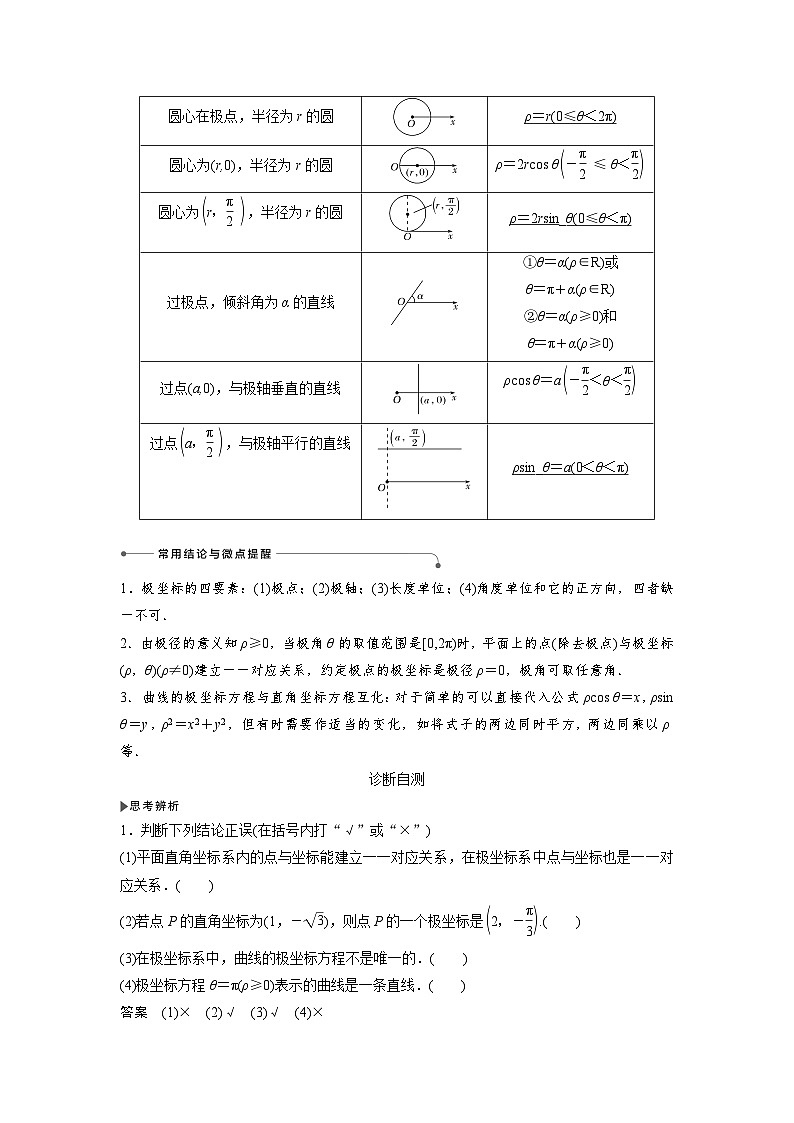 圆心在极点，半径为 r 的圆
O x
ρ＝r(0≤θ＜2π)
圆心为(r,0)，半径为 r 的圆
O (r,0) x
ρ＝2rcos θ(－π/2≤θ＜π/2)
圆心为(r，π/2)，半径为 r 的圆
(r,π/2)
O x
ρ＝2rsin_θ(0≤θ＜π)
过极点，倾斜角为 α 的直线
O α x
①θ＝α(ρ∈R)或
θ＝π＋α(ρ∈R)
②θ＝α(ρ≥0)和
θ＝π＋α(ρ≥0)
过点(a,0)，与极轴垂直的直线
O (a,0) x
ρcos θ＝a(－π/2＜θ＜π/2)
过点(a，π/2)，与极轴平行的直线
(a,π/2)
O x
ρsin_θ＝a(0＜θ＜π)
常用结论与微点提醒
1．极坐标的四要素：(1)极点；(2)极轴；(3)长度单位；(4)角度单位和它的正方向，四者缺
一不可．
2．由极径的意义知 ρ≥0，当极角 θ 的取值范围是[0,2π)时，平面上的点(除去极点)与极坐标
(ρ，θ)(ρ≠0)建立一一对应关系，约定极点的极坐标是极径 ρ＝0，极角可取任意角．
3．曲线的极坐标方程与直角坐标方程互化：对于简单的可以直接代入公式 ρcos θ＝x，ρsin
θ＝y，ρ²＝x²＋y²，但有时需要作适当的变化，如将式子的两边同时平方，两边同乘以 ρ
等．
诊断自测
思考辨析
1．判断下列结论正误(在括号内打“√”或“×”)
(1)平面直角坐标系内的点与坐标能建立一一对应关系，在极坐标系中点与坐标也是一一对
应关系．(　　)
(2)若点 P 的直角坐标为(1，－√3)，则点 P 的一个极坐标是(2，－π/3).(　　)
(3)在极坐标系中，曲线的极坐标方程不是唯一的．(　　)
(4)极坐标方程 θ＝π(ρ≥0)表示的曲线是一条直线．(　　)
答案　(1)×　(2)√　(3)√　(4)×